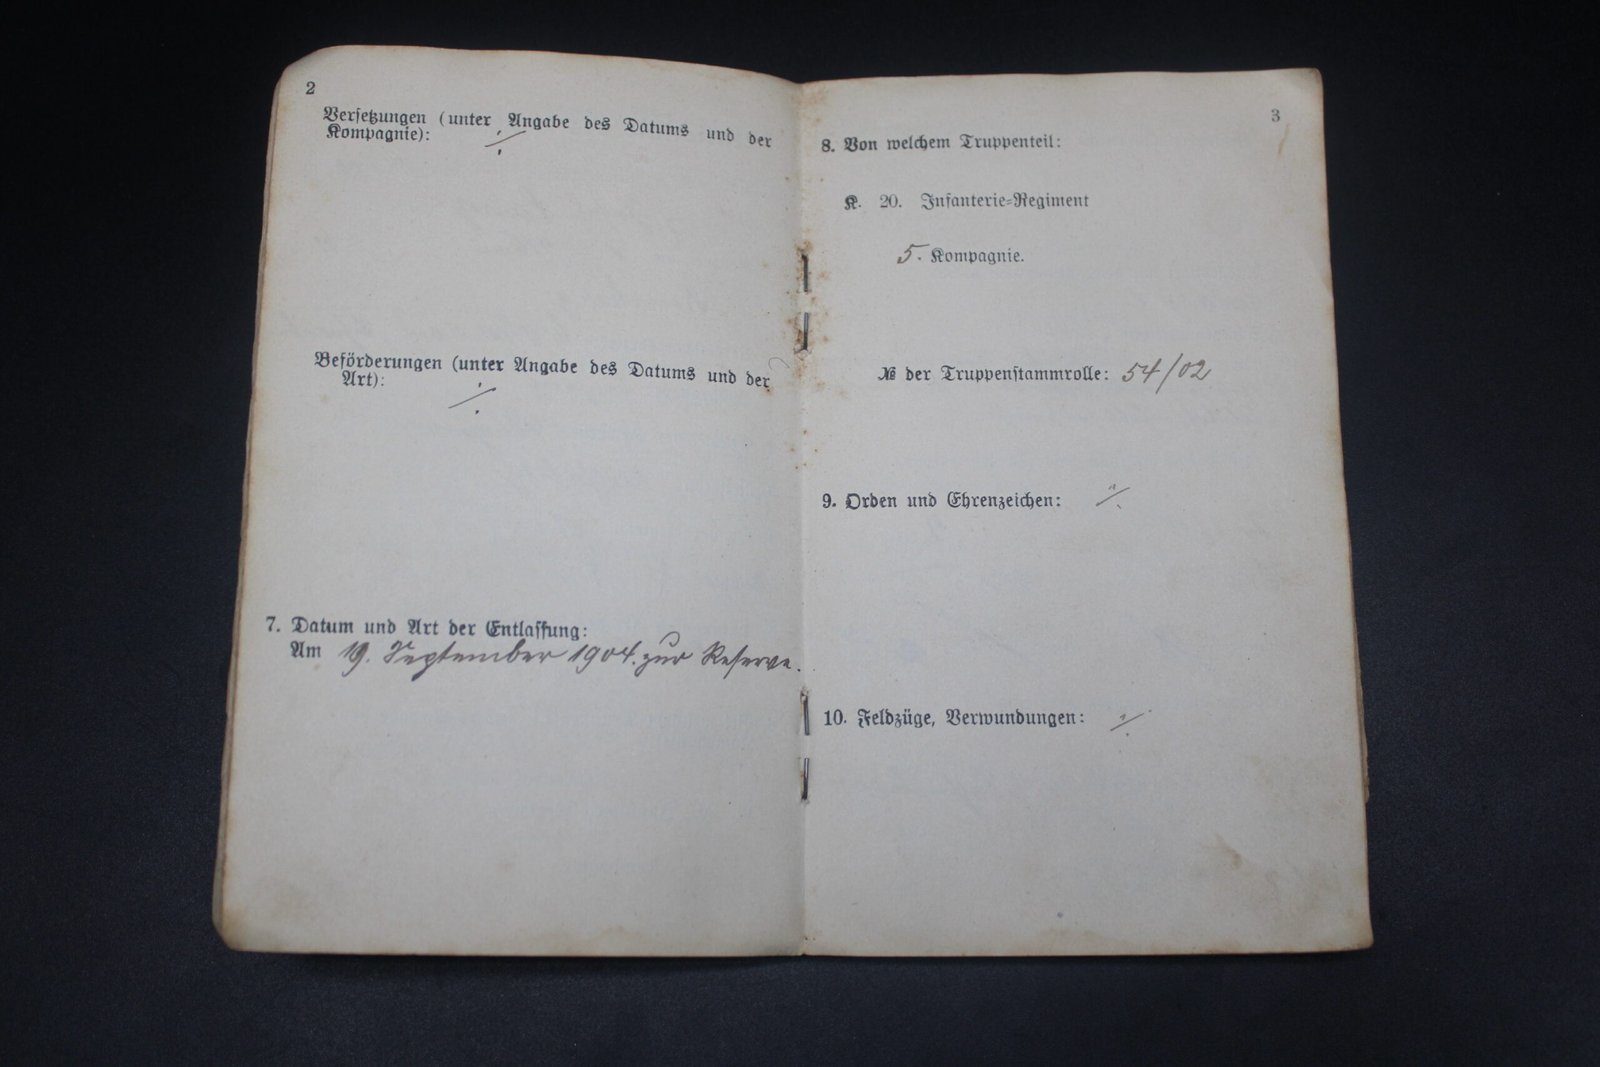 2
Versetzungen (unter Angabe des Datums und der
Kompagnie): ·/.
Beförderungen (unter Angabe des Datums und der
Art): ·/.
7. Datum und Art der Entlassung:
Am 19. September 1904. zur Reserve.
3
8. Von welchem Truppenteil:
K. 20. Infanterie=Regiment
5. Kompagnie.
№ der Truppenstammrolle: 54/02
9. Orden und Ehrenzeichen: ·/.
10. Feldzüge, Verwundungen: ·/.